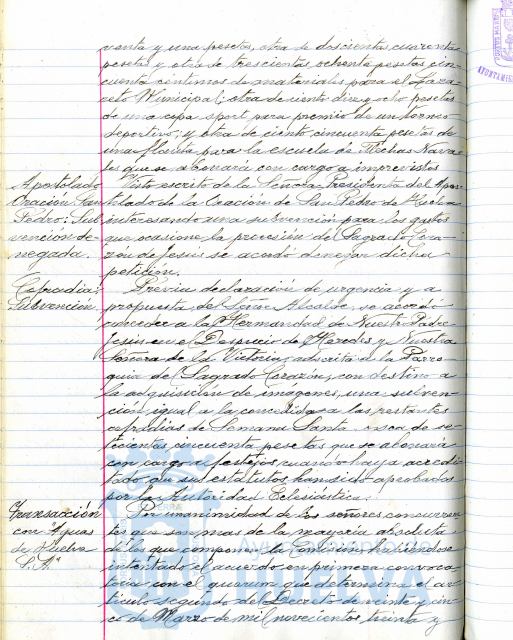 venta y una pesetas, otra de doscientas cuarenta
pesetas y otra de trescientas ochenta pesetas cin-
cuenta centimos de materiales para el Laza-
reto Municipal; otra de ciento diez y ocho pesetas
de una copa sport para premio de un torneo
deportivo; y otra de ciento cincuenta pesetas de
una flauta para la escuela de Flechas Nava-
les que se abonará con cargo a imprevistos
Apostolado
Oración San
Pedro: Sub
vención de-
negada.
Visto escrito de la Señora Presidenta del Apos-
tolado de la Oración de San Pedro de Huelva
interesando una subvención para los gastos
que ocasione la procesión del Sagrado Cora-
zón de Jesús se acordó denegar dicha
petición.
Cofradia:
Subvención.
Previa declaración de urgencia y a
propuesta del Señor Alcalde, se acordó
conceder a la Hermandad de Nuestro Padre
Jesús en el Desprecio de Herodes y Nuestra
Señora de la Victoria, adscrita de la Parro-
quia del Sagrado Corazón, con destino a
la adquisición de imágenes, una subven-
ción igual a la concedida a las restantes
cofradias de Semana Santa o sea de se-
tecientas cincuenta pesetas que se abonará
con cargo a festejos cuando haya acredi-
tado que sus estatutos han sido aprobados
por la Autoridad Eclesiástica.
Transacción
con "Aguas
de Huelva
S.A."
Por unanimidad de los señores concurren
tes que son mas de la mayoria absoluta
de los que componen la Comisión, habiéndose
intentado el acuerdo en primera convoca
toria con el quorum que determina el ar
tículo segundo del Decreto de veinte y cin
co de Marzo de mil novecientos treinta y
AYUNTAMIE
HUELVA